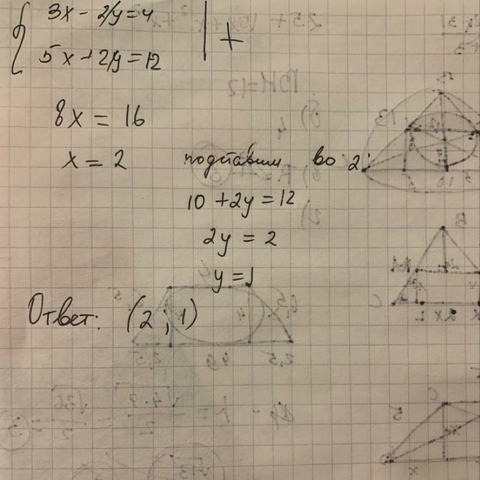 3x - 2y = 4
5x + 2y = 12
8x = 16
x = 2 подставим во 2:
10 + 2y = 12
2y = 2
y = 1
Ответ: (2 ; 1)